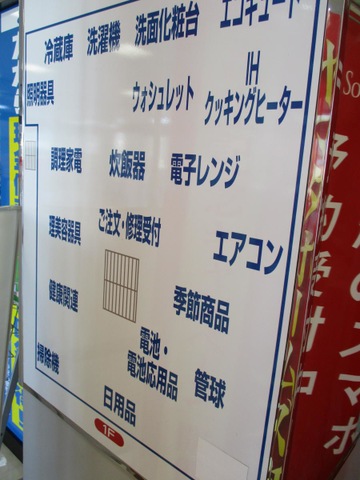 エコキュート
冷蔵庫 洗濯機 洗面化粧台
照明器具 ウォシュレット
IH
クッキングヒーター
調理家電 炊飯器 電子レンジ
理美容器具 ご注文・修理受付 エアコン
健康関連 季節商品
掃除機
電池・
電池応用品 管球
日用品
1F
So
予約受付中
スマホ